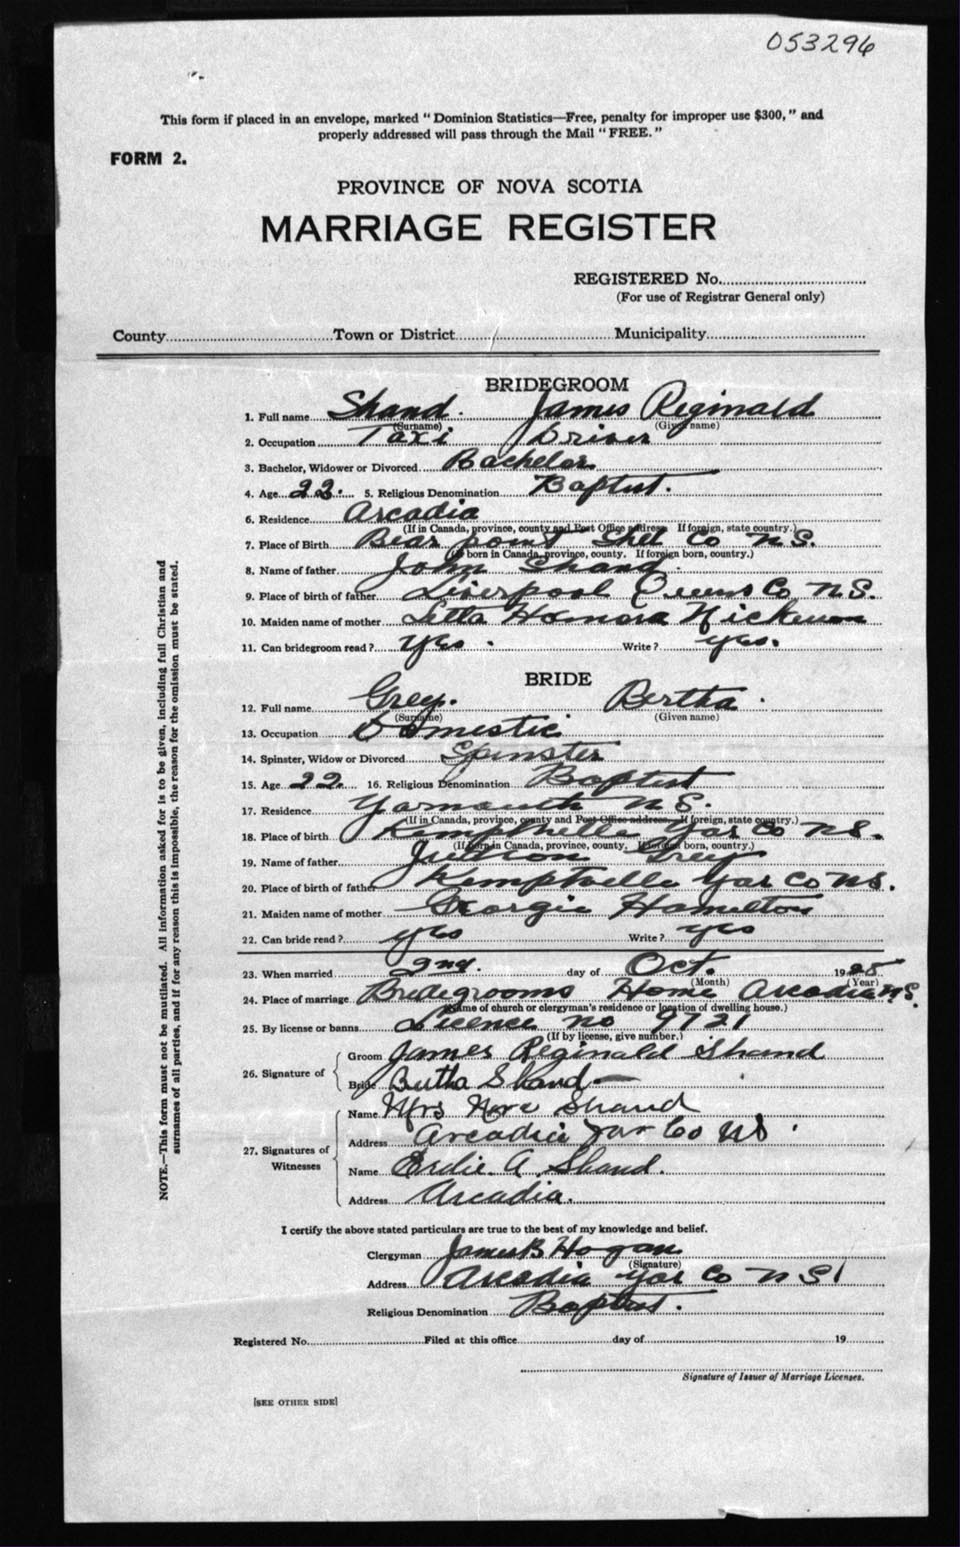 053296
This form if placed in an envelope, marked "Dominion Statistics—Free, penalty for improper use $300," and
properly addressed will pass through the Mail "FREE."
FORM 2.
PROVINCE OF NOVA SCOTIA
MARRIAGE REGISTER
REGISTERED No.
(For use of Registrar General only)
County Town or District Municipality
BRIDEGROOM
1. Full name Shand. James Reginald
(Surname) (Given name)
2. Occupation Taxi Driver
3. Bachelor, Widower or Divorced Bachelor
4. Age 22. 5. Religious Denomination Baptist.
6. Residence Arcadia
(If in Canada, province, county and Post Office address. If foreign, state country.)
7. Place of Birth Bear point Shel Co N S.
(If born in Canada, province, county. If foreign born, country.)
8. Name of father John Shand.
9. Place of birth of father Liverpool Queens Co, N. S.
10. Maiden name of mother Letta Nickerson
11. Can bridegroom read? Yes. Write? Yes.
BRIDE
12. Full name Grey. Bertha.
(Surname) (Given name)
13. Occupation Domestic
14. Spinster, Widow or Divorced Spinster
15. Age 22 16. Religious Denomination Baptist
17. Residence Yarmouth N S.
(If in Canada, province, county and Post Office address. If foreign, state country.)
18. Place of birth Kemptville Yar Co N S.
(If born in Canada, province, county. If foreign born, country.)
19. Name of father Judson Grey
20. Place of birth of father Kemptville Yar Co NS.
21. Maiden name of mother Georgie Hamilton
22. Can bride read? Yes Write? Yes
23. When married 2nd. day of Oct. 19
(Month) (Year)
24. Place of marriage Bridegrooms Home Arcadia N S.
(Name of church or clergyman's residence or location of dwelling house.)
25. By license or banns Licence no 9721
(If by license, give number.)
26. Signature of
Groom James Reginald Shand
Bride Bertha Shand
27. Signatures of Witnesses
Name Mrs Shand
Address Arcadia Yar Co NS.
Name A. Shand.
Address Arcadia.
I certify the above stated particulars are true to the best of my knowledge and belief.
Clergyman James B Hogan
(Signature)
Address Arcadia Yar Co N S
Religious Denomination Baptist.
Registered No. Filed at this office day of 19
Signature of Issuer of Marriage Licenses.
[SEE OTHER SIDE]
NOTE.—This form must not be mutilated. All information asked for is to be given, including full Christian and
surnames of all parties, and if for any reason this is impossible, the reason for the omission must be stated.